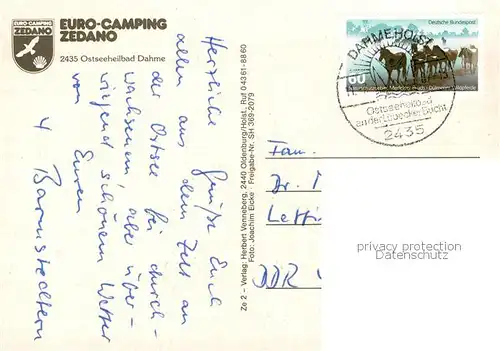 EURO-CAMPING
ZEDANO
EURO-CAMPING
ZEDANO
2435 Ostseeheilbad Dahme
Herzliche Grüße Euch
allen aus dem Zelt an
der Ostsee bei durch-
wachsenem aber über-
wiegend schönem Wetter
von Euren
4 Barmstedtern
Ze 2 - Verlag: Herbert Venneberg, 2440 Oldenburg/Holst., Ruf 04361-8860
Foto: Joachim Eicke Freigabe-Nr. SH 369-2079
Deutsche Bundespost
60
DAHME, HOLST
Ostseeheilbad
an der Lübecker Bucht
2435
Fam.
Dr.
DDR
privacy protection
Datenschutz